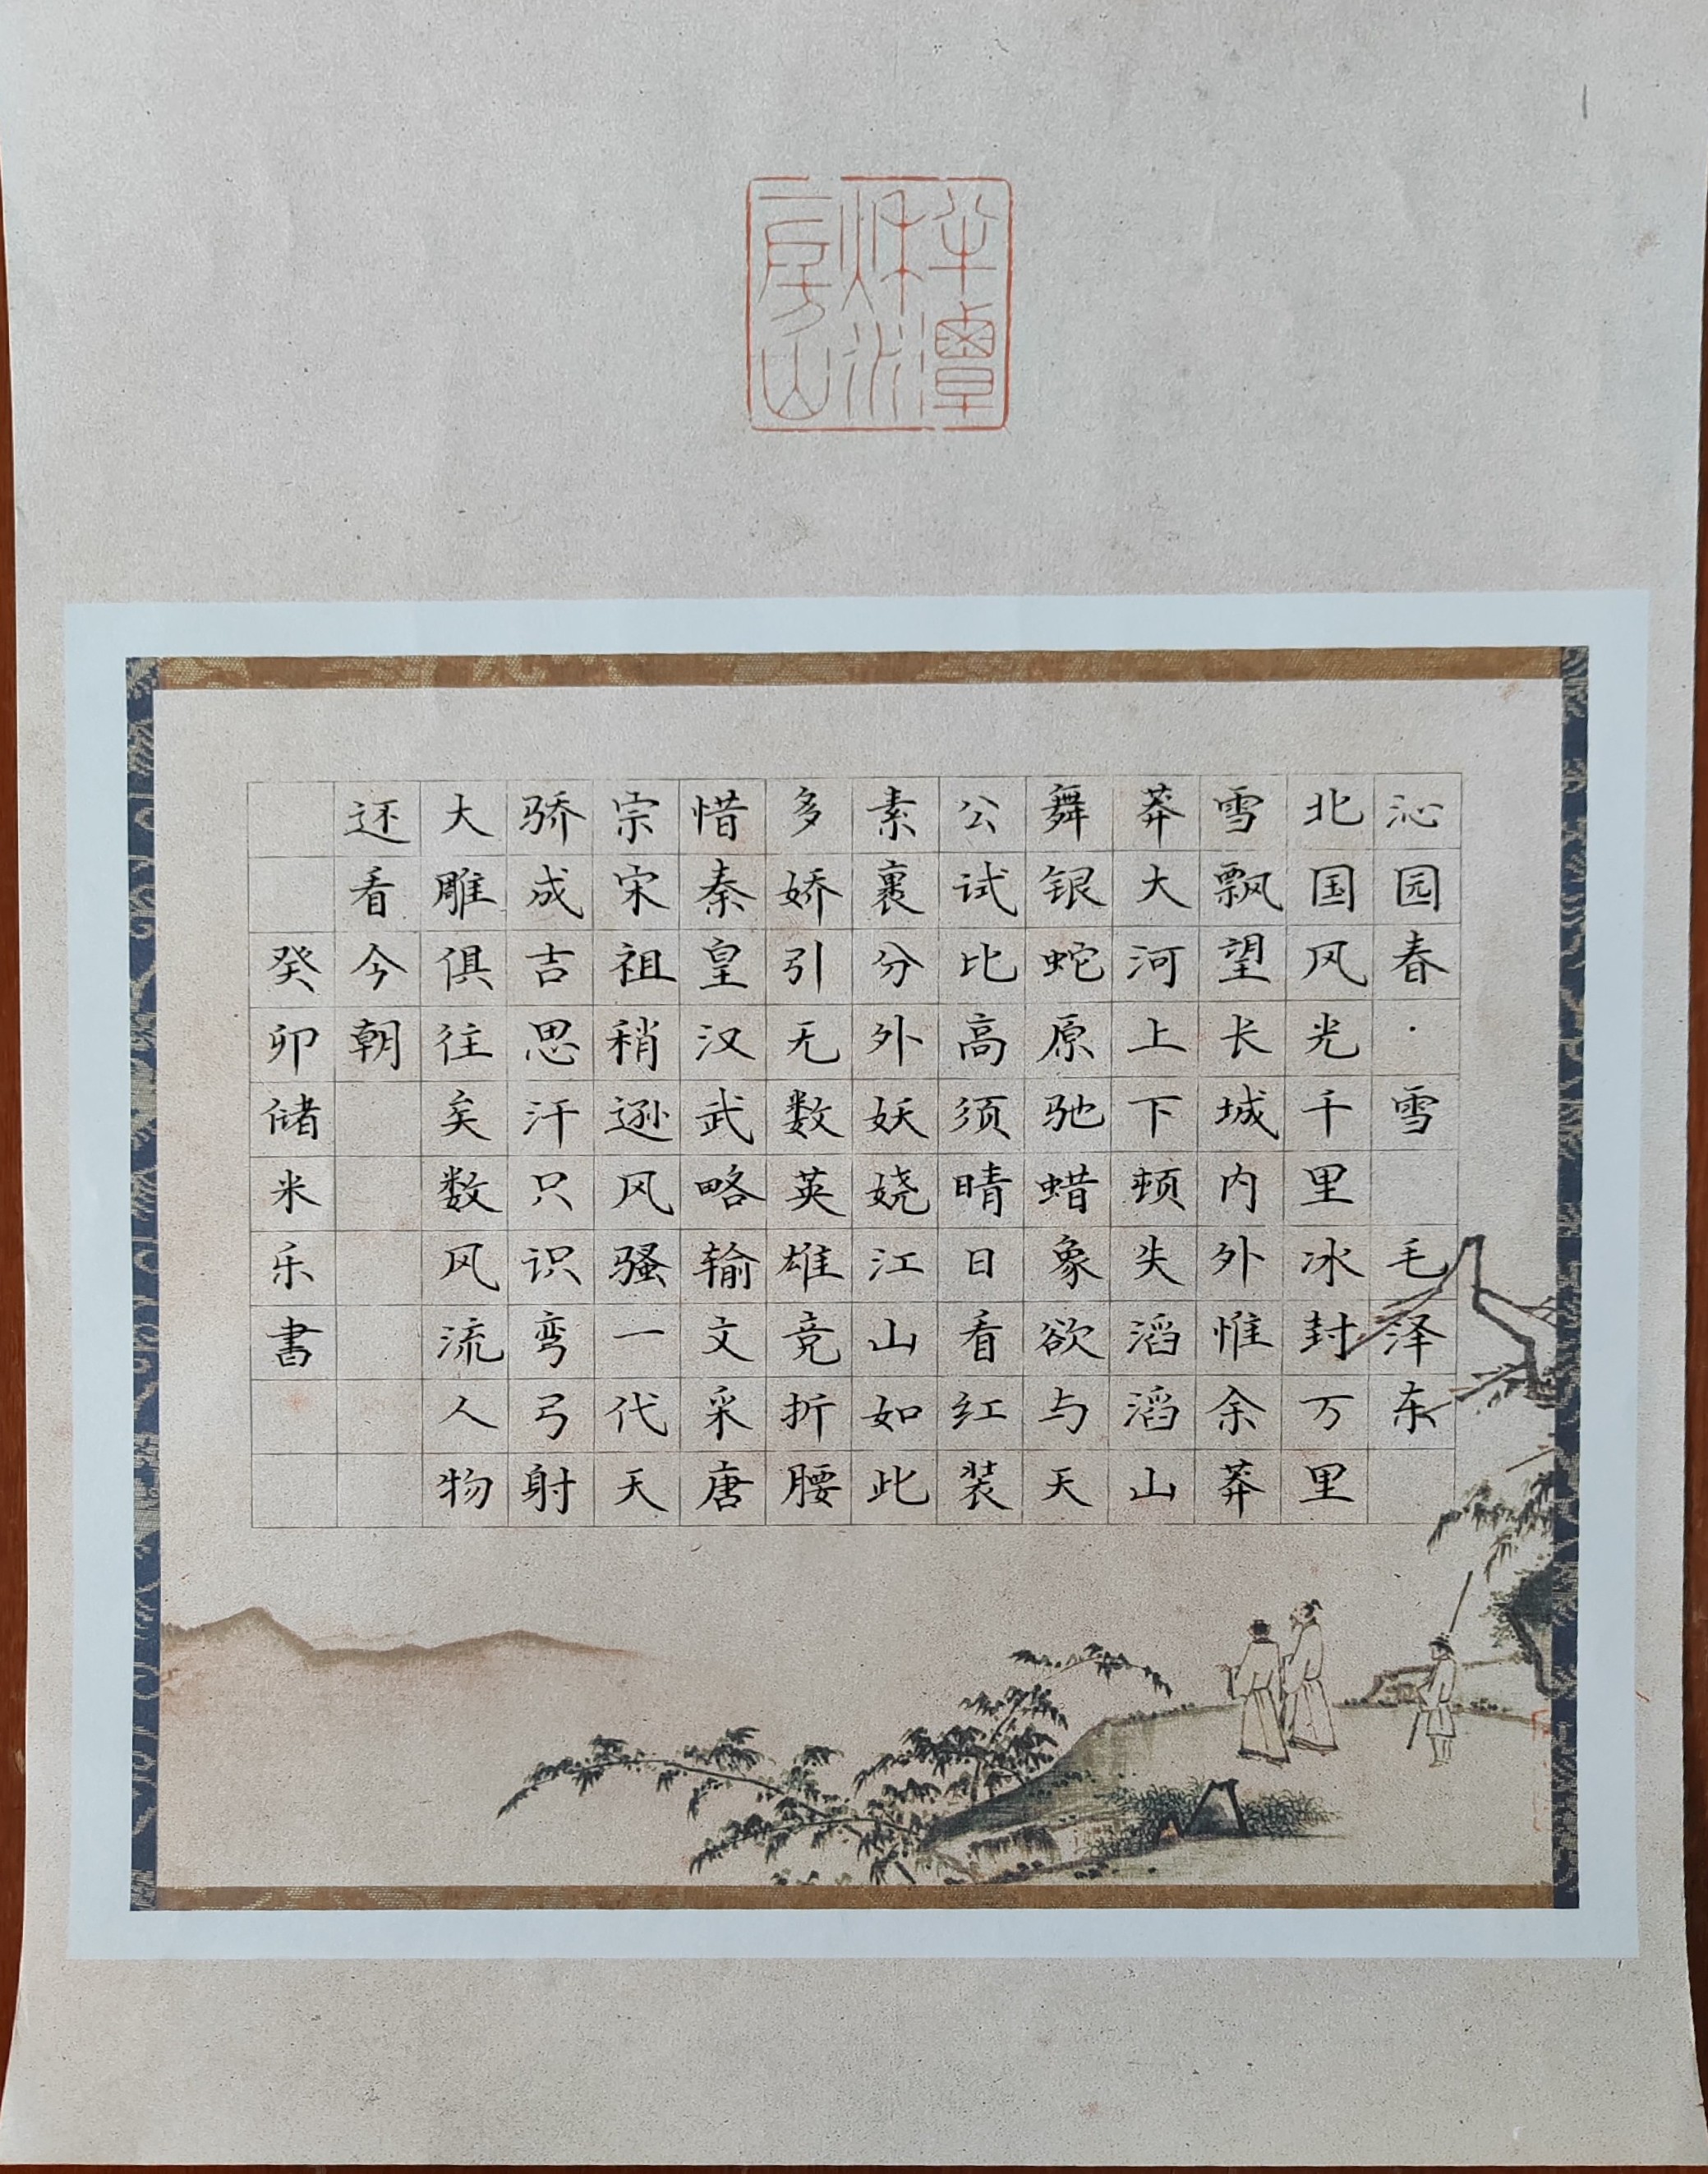 半潭
秋水
一房山
沁园春·雪 毛泽东
北国风光千里冰封万里
雪飘望长城内外惟余莽
莽大河上下顿失滔滔山
舞银蛇原驰蜡象欲与天
公试比高须晴日看红装
素裹分外妖娆江山如此
多娇引无数英雄竞折腰
惜秦皇汉武略输文采唐
宗宋祖稍逊风骚一代天
骄成吉思汗只识弯弓射
大雕俱往矣数风流人物
还看今朝
癸卯储米乐書